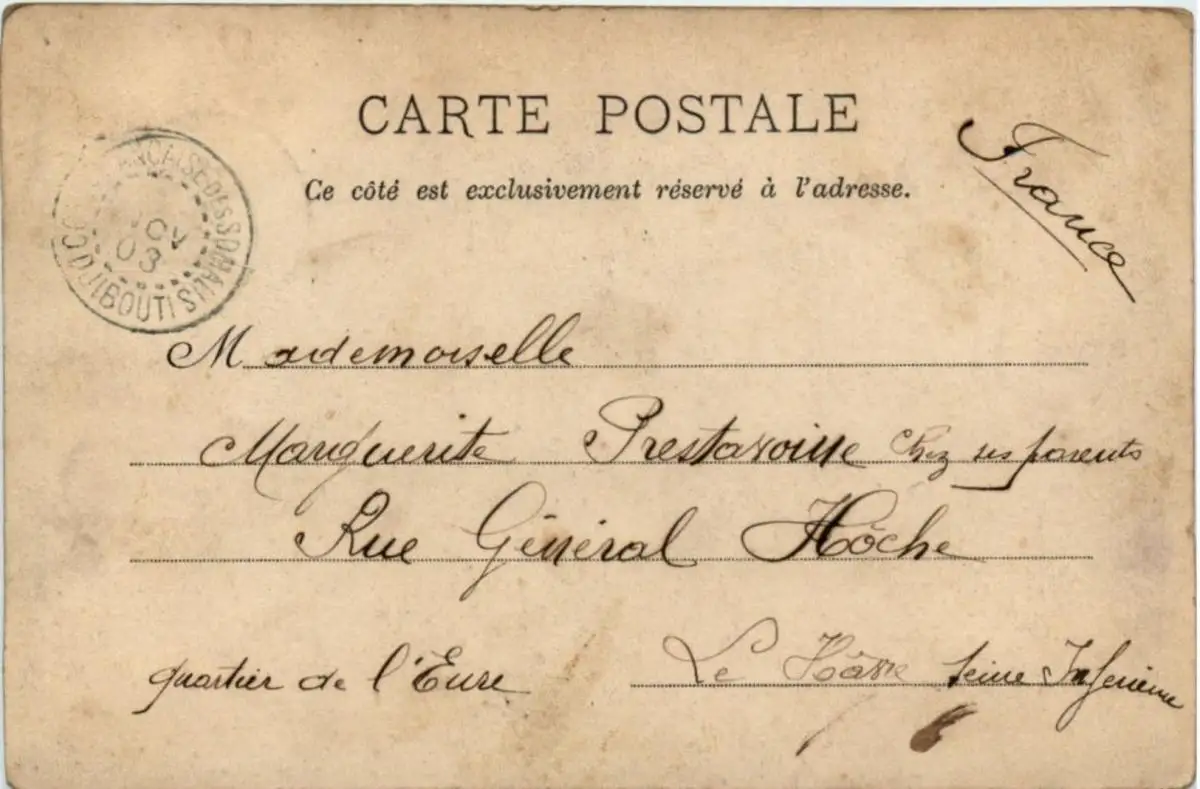 CARTE POSTALE
Ce côté est exclusivement réservé à l'adresse.
France
FRANÇAISE DES SOMALIS
03
DJIBOUTI
Mademoiselle
Marguerite Prestavoine chez ses parents
Rue Général Hôche
quartier de l'Eure
Le Hâvre Seine Inférieure